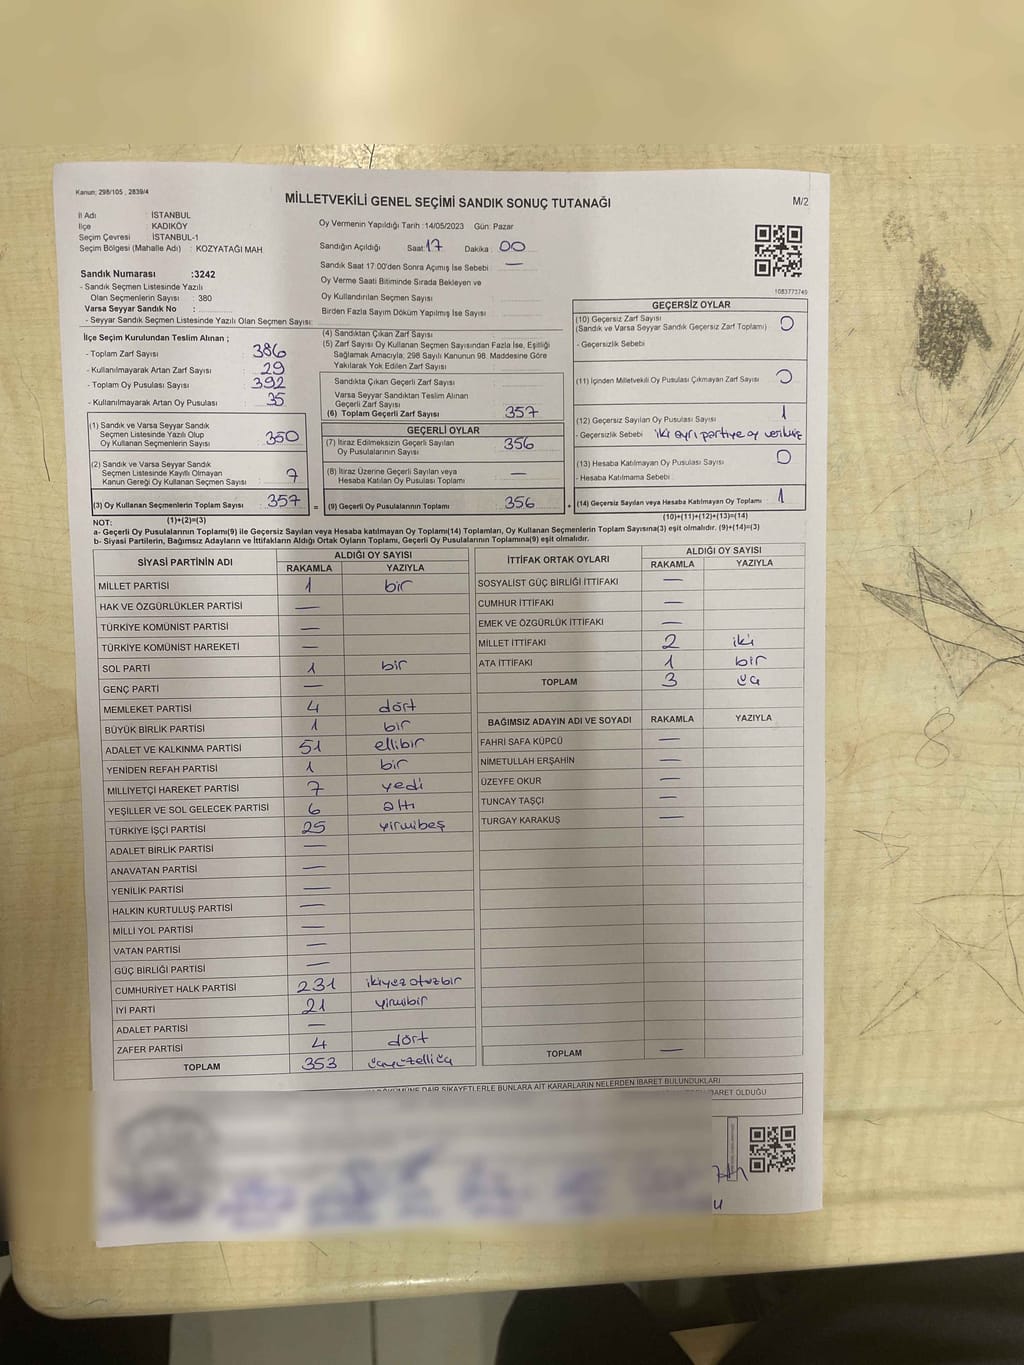 Kanun; 298/105 , 2839/4
MİLLETVEKİLİ GENEL SEÇİMİ SANDIK SONUÇ TUTANAĞI
M/2
İl Adı : İSTANBUL
İlçe : KADIKÖY
Seçim Çevresi : İSTANBUL-1
Seçim Bölgesi (Mahalle Adı) : KOZYATAĞI MAH
Sandık Numarası :3242
- Sandık Seçmen Listesinde Yazılı
Olan Seçmenlerin Sayısı : 380
Varsa Seyyar Sandık No :
- Seyyar Sandık Seçmen Listesinde Yazılı Olan Seçmen Sayısı:
Oy Vermenin Yapıldığı Tarih :14/05/2023 Gün: Pazar
Sandığın Açıldığı Saat:17 Dakika : 00
Sandık Saat 17:00'den Sonra Açımış İse Sebebi : —
Oy Verme Saati Bitiminde Sırada Bekleyen ve
Oy Kullandırılan Seçmen Sayısı :
Birden Fazla Sayım Döküm Yapılmış İse Sayısı :
1083773749
İlçe Seçim Kurulundan Teslim Alınan ;
- Toplam Zarf Sayısı : 386
- Kullanılmayarak Artan Zarf Sayısı : 29
- Toplam Oy Pusulası Sayısı : 392
- Kullanılmayarak Artan Oy Pusulası : 35
(1) Sandık ve Varsa Seyyar Sandık
Seçmen Listesinde Yazılı Olup
Oy Kullanan Seçmenlerin Sayısı : 350
(2) Sandık ve Varsa Seyyar Sandık
Seçmen Listesinde Kayıtlı Olmayan
Kanun Gereği Oy Kullanan Seçmen Sayısı : 7
(3) Oy Kullanan Seçmenlerin Toplam Sayısı : 357
(4) Sandıktan Çıkan Zarf Sayısı :
(5) Zarf Sayısı Oy Kullanan Seçmen Sayısından Fazla İse, Eşitliği
Sağlamak Amacıyla; 298 Sayılı Kanunun 98. Maddesine Göre
Yakılarak Yok Edilen Zarf Sayısı :
Sandıkta Çıkan Geçerli Zarf Sayısı :
Varsa Seyyar Sandıktan Teslim Alınan
Geçerli Zarf Sayısı :
(6) Toplam Geçerli Zarf Sayısı : 357
GEÇERLİ OYLAR
(7) İtiraz Edilmeksizin Geçerli Sayılan
Oy Pusulalarının Sayısı : 356
(8) İtiraz Üzerine Geçerli Sayılan veya
Hesaba Katılan Oy Pusulası Toplamı : —
= (9) Geçerli Oy Pusulalarının Toplamı : 356 +
GEÇERSİZ OYLAR
(10) Geçersiz Zarf Sayısı
(Sandık ve Varsa Seyyar Sandık Geçersiz Zarf Toplamı) : 0
- Geçersizlik Sebebi :
(11) İçinden Milletvekili Oy Pusulası Çıkmayan Zarf Sayısı : 0
(12) Geçersiz Sayılan Oy Pusulası Sayısı : 1
- Geçersizlik Sebebi : iki ayrı partiye oy
(13) Hesaba Katılmayan Oy Pusulası Sayısı : 0
- Hesaba Katılmama Sebebi :
(14) Geçersiz Sayılan veya Hesaba Katılmayan Oy Toplamı : 1
NOT: (1)+(2)=(3)
(10)+(11)+(12)+(13)=(14)
a- Geçerli Oy Pusulalarının Toplamı(9) ile Geçersiz Sayılan veya Hesaba katılmayan Oy Toplamı(14) Toplamları, Oy Kullanan Seçmenlerin Toplam Sayısına(3) eşit olmalıdır. (9)+(14)=(3)
b- Siyasi Partilerin, Bağımsız Adayların ve İttifakların Aldığı Ortak Oyların Toplamı, Geçerli Oy Pusulalarının Toplamına(9) eşit olmalıdır.
SİYASİ PARTİNİN ADI ALDIĞI OY SAYISI
RAKAMLA YAZIYLA
MİLLET PARTİSİ 1 bir
HAK VE ÖZGÜRLÜKLER PARTİSİ —
TÜRKİYE KOMÜNİST PARTİSİ —
TÜRKİYE KOMÜNİST HAREKETİ —
SOL PARTİ 1 bir
GENÇ PARTİ —
MEMLEKET PARTİSİ 4 dört
BÜYÜK BİRLİK PARTİSİ 1 bir
ADALET VE KALKINMA PARTİSİ 51 ellibir
YENİDEN REFAH PARTİSİ 1 bir
MİLLİYETÇİ HAREKET PARTİSİ 7 yedi
YEŞİLLER VE SOL GELECEK PARTİSİ 6 altı
TÜRKİYE İŞÇİ PARTİSİ 25 yirmibeş
ADALET BİRLİK PARTİSİ —
ANAVATAN PARTİSİ —
YENİLİK PARTİSİ —
HALKIN KURTULUŞ PARTİSİ —
MİLLİ YOL PARTİSİ —
VATAN PARTİSİ —
GÜÇ BİRLİĞİ PARTİSİ —
CUMHURİYET HALK PARTİSİ 231 ikiyüzotuzbir
İYİ PARTİ 21 yirmibir
ADALET PARTİSİ —
ZAFER PARTİSİ 4 dört
TOPLAM 353 üçyüzelliüç
İTTİFAK ORTAK OYLARI ALDIĞI OY SAYISI
RAKAMLA YAZIYLA
SOSYALİST GÜÇ BİRLİĞİ İTTİFAKI —
CUMHUR İTTİFAKI —
EMEK VE ÖZGÜRLÜK İTTİFAKI —
MİLLET İTTİFAKI 2 iki
ATA İTTİFAKI 1 bir
TOPLAM 3 üç
BAĞIMSIZ ADAYIN ADI VE SOYADI RAKAMLA YAZIYLA
FAHRİ SAFA KÜPCÜ —
NİMETULLAH ERŞAHİN —
ÜZEYFE OKUR —
TUNCAY TAŞÇI —
TURGAY KARAKUŞ —
TOPLAM —
DAİR ŞİKAYETLERLE BUNLARA AİT KARARLARIN NELERDEN İBARET BULUNDUKLARI
İBARET OLDUĞU